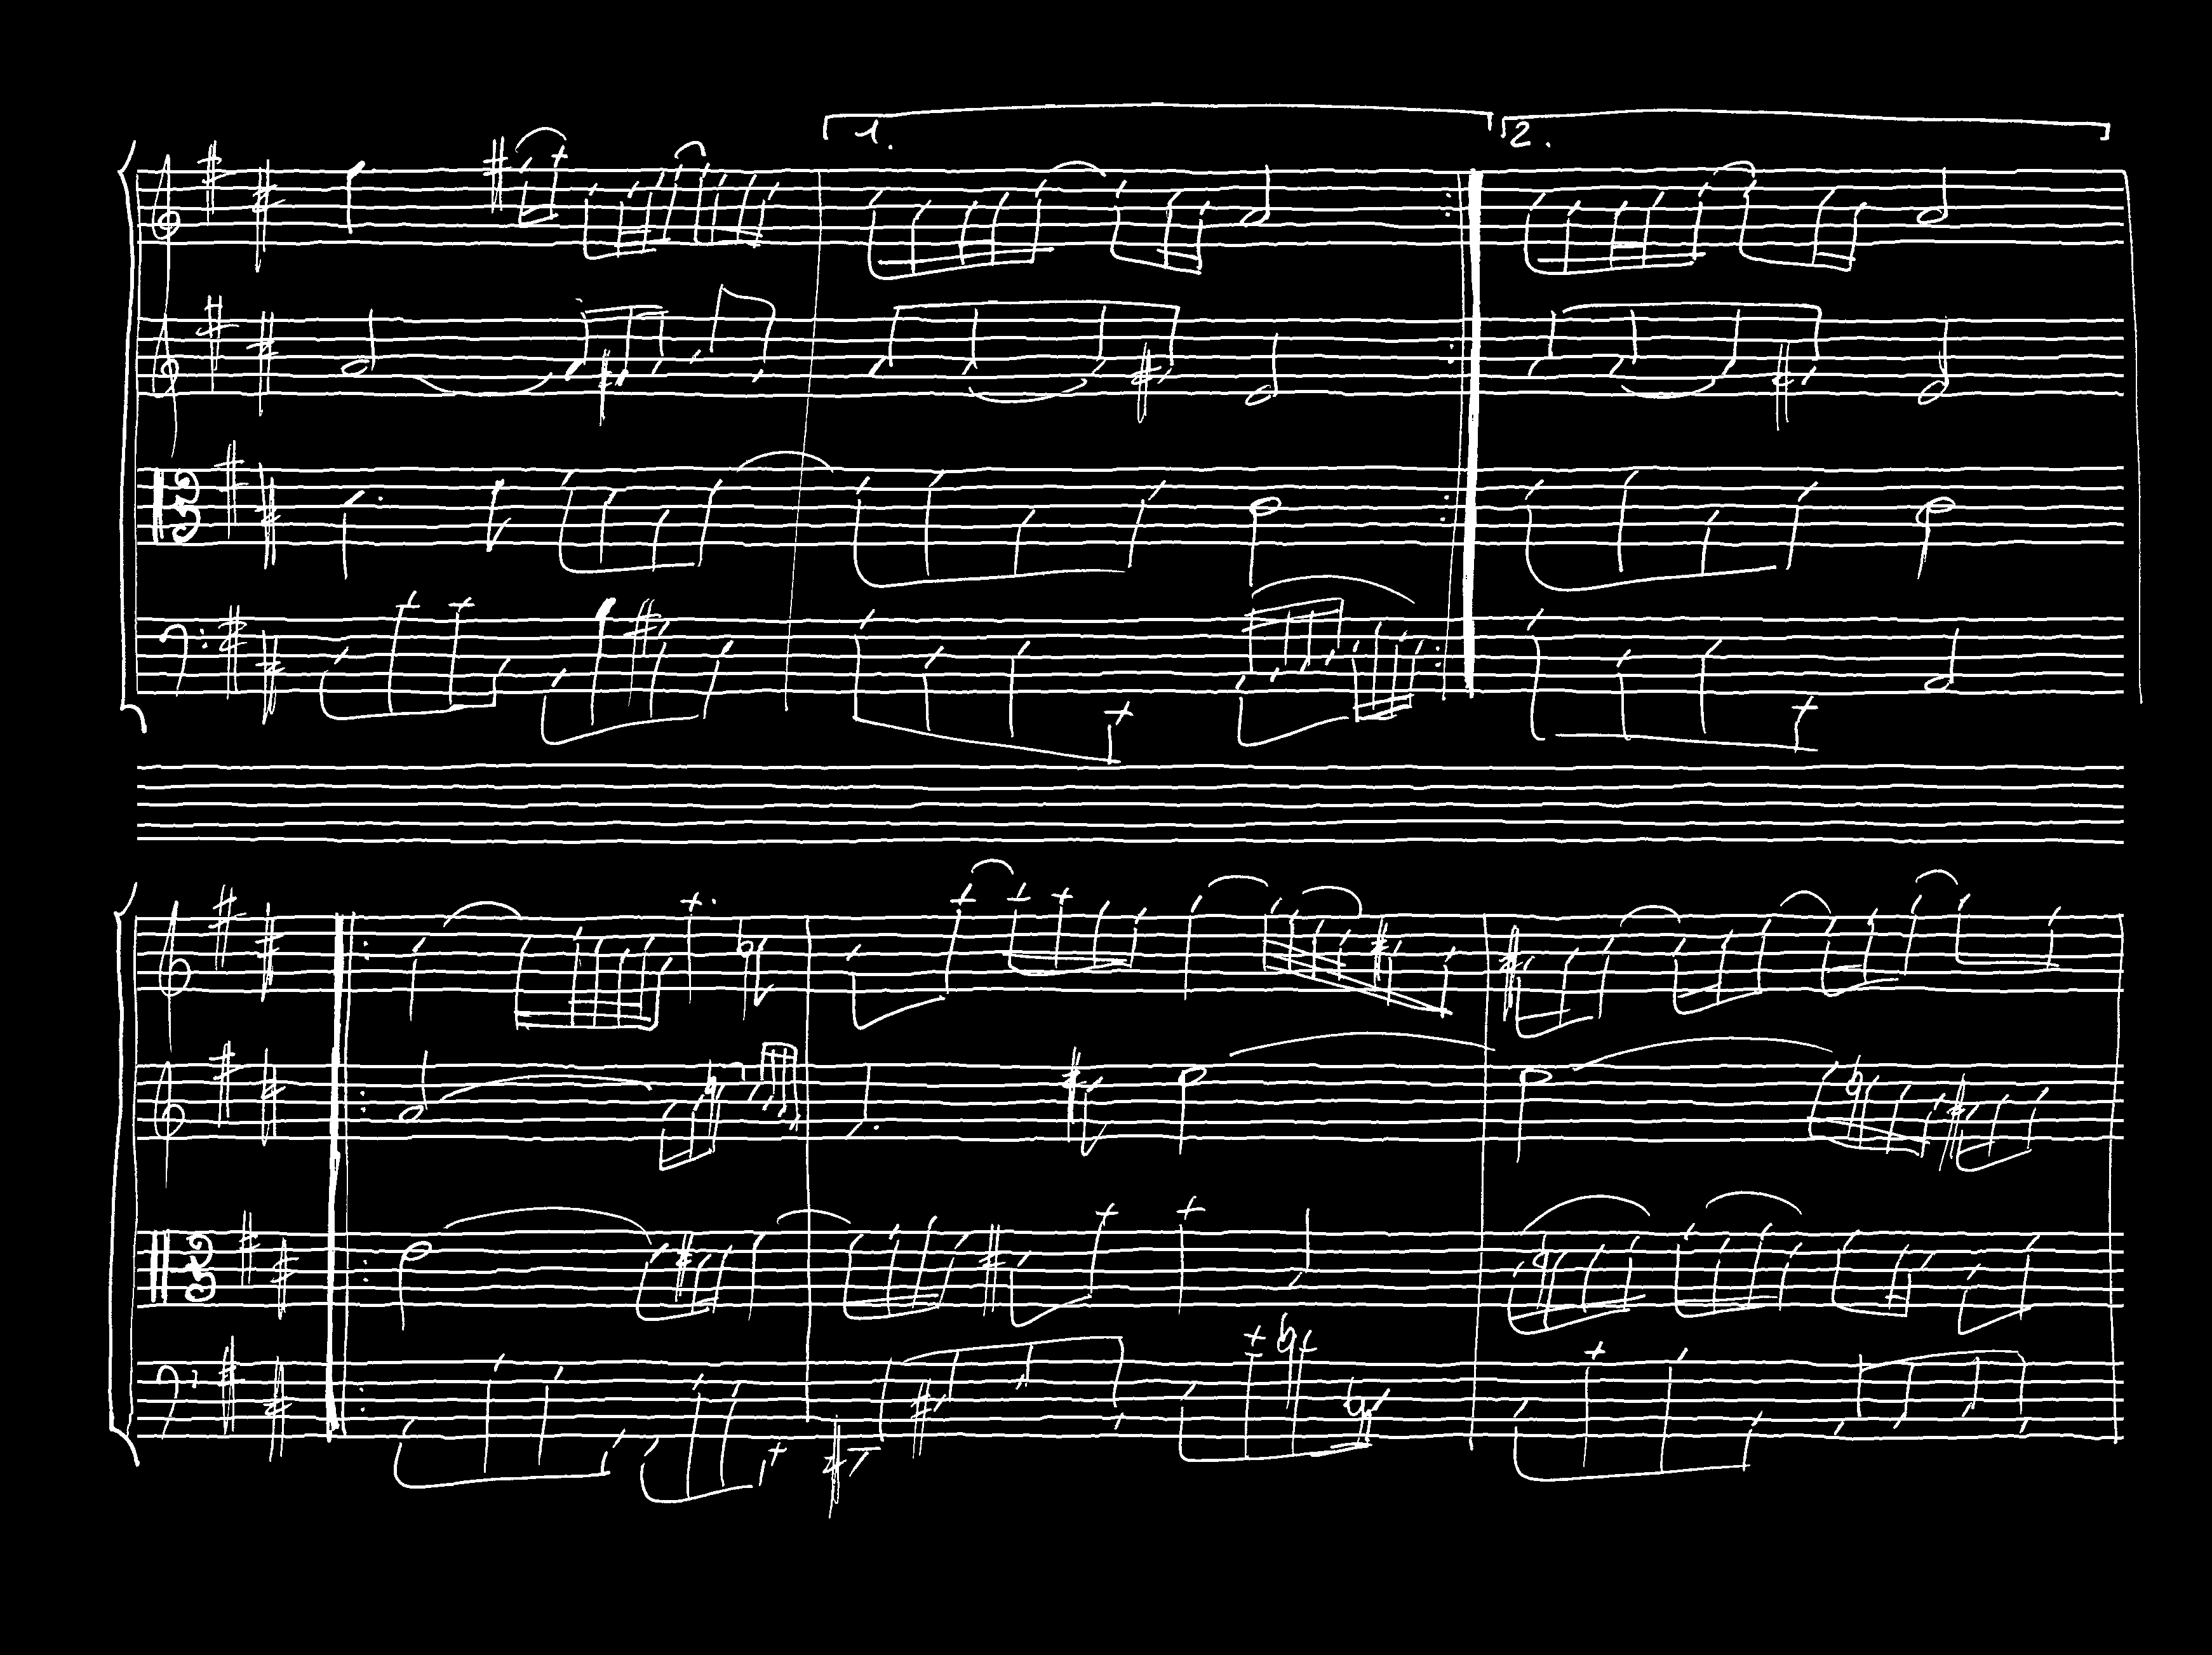 1. 2.